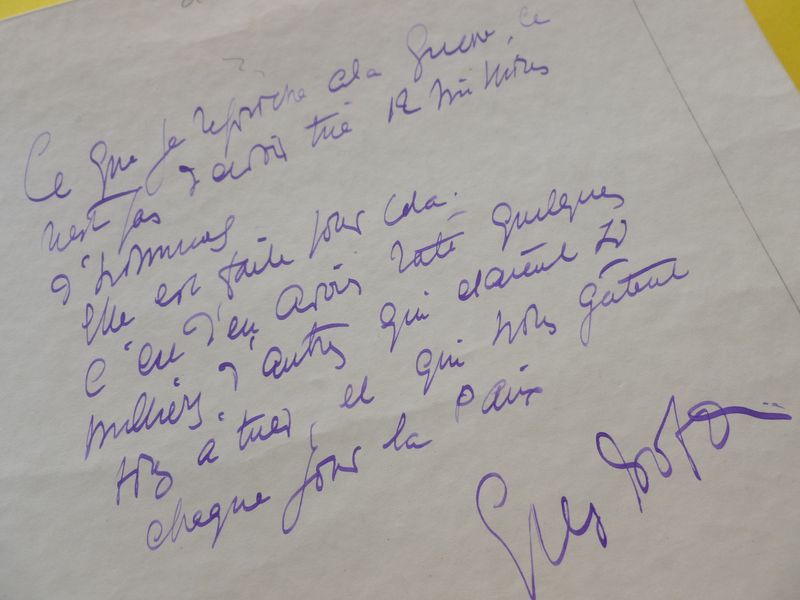 Ce que je reproche à la guerre, ce
n'est pas d'avoir tué 12 millions
d'hommes
Elle est faite pour cela.
C'est d'en avoir raté quelques
milliers d'autres qui étaient
à tuer, et qui nous gâtent
chaque jour la paix